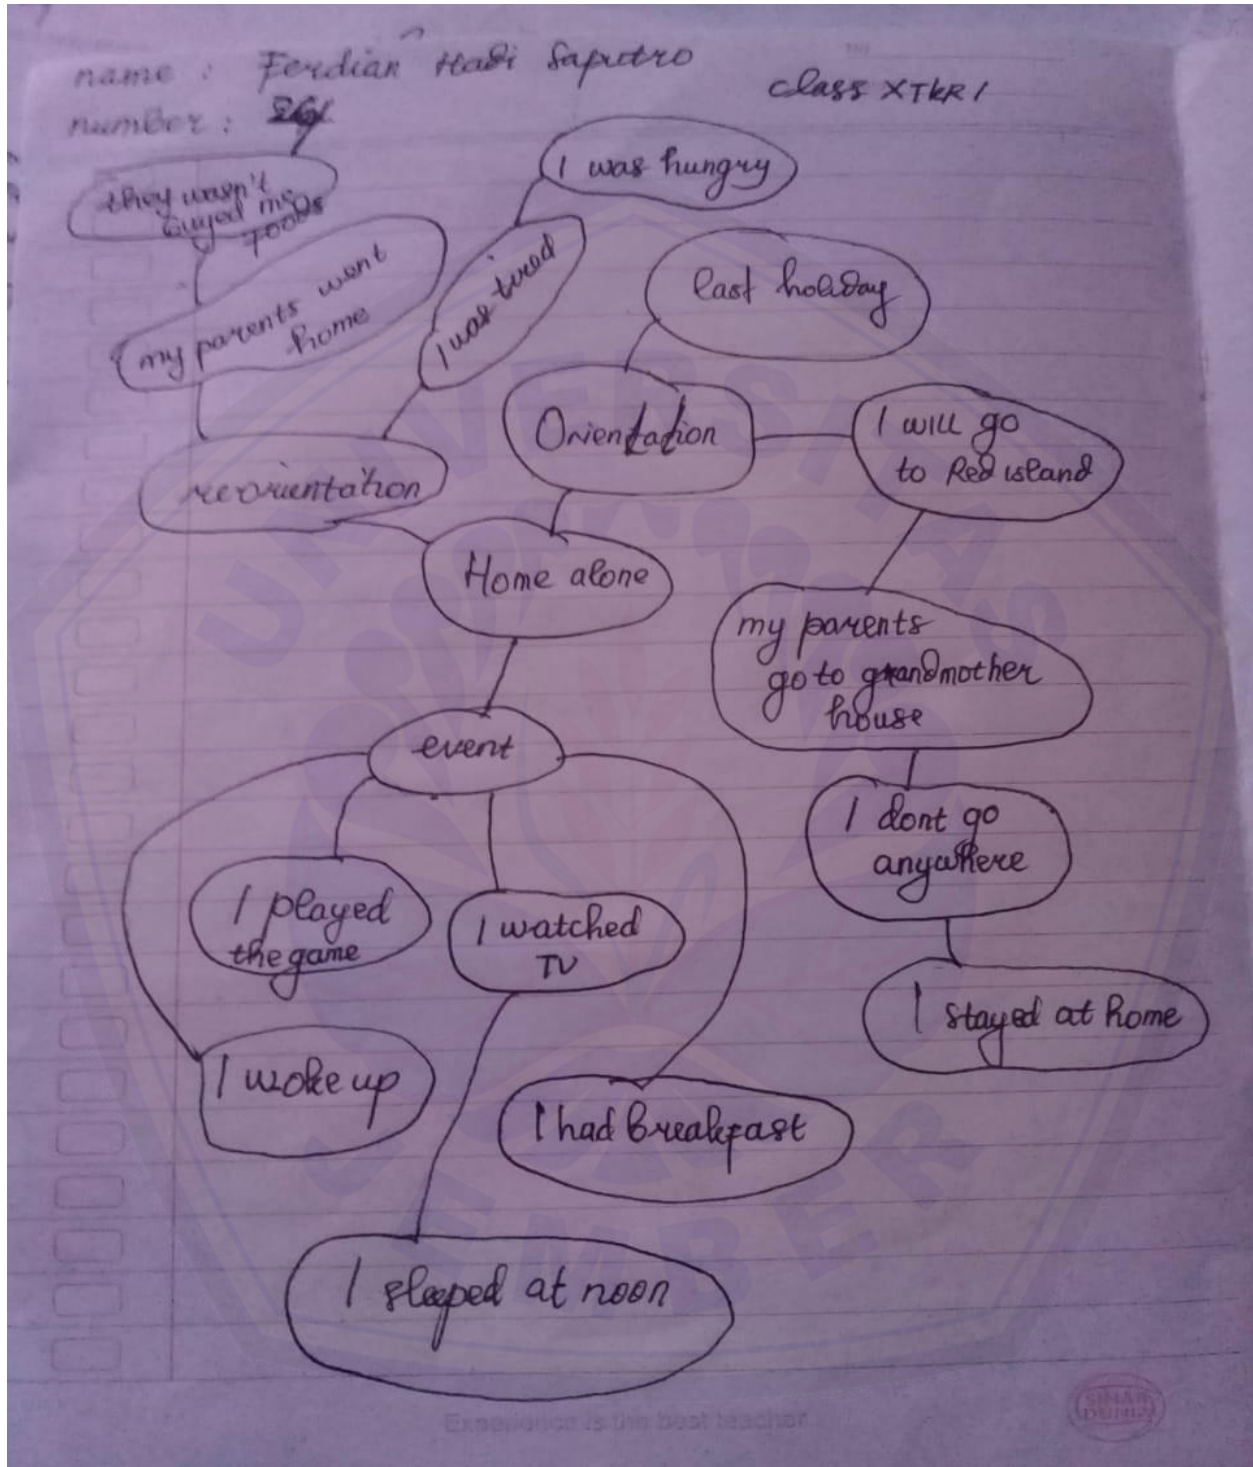 name : Ferdian Hadi Saputro
class XTKR 1
number :
they wasn't
buyed me
foods
I was hungry
my parents went
home
I was tired
last holiday
Orientation
I will go
to Red island
reorientation
Home alone
my parents
go to grandmother
house
event
I dont go
anywhere
I played
the game
I watched
TV
I stayed at home
I woke up
I had Breakfast
I sleeped at noon
UNIVERSITAS
JEMBER
Experience is the best teacher
SINAR
DUNIA